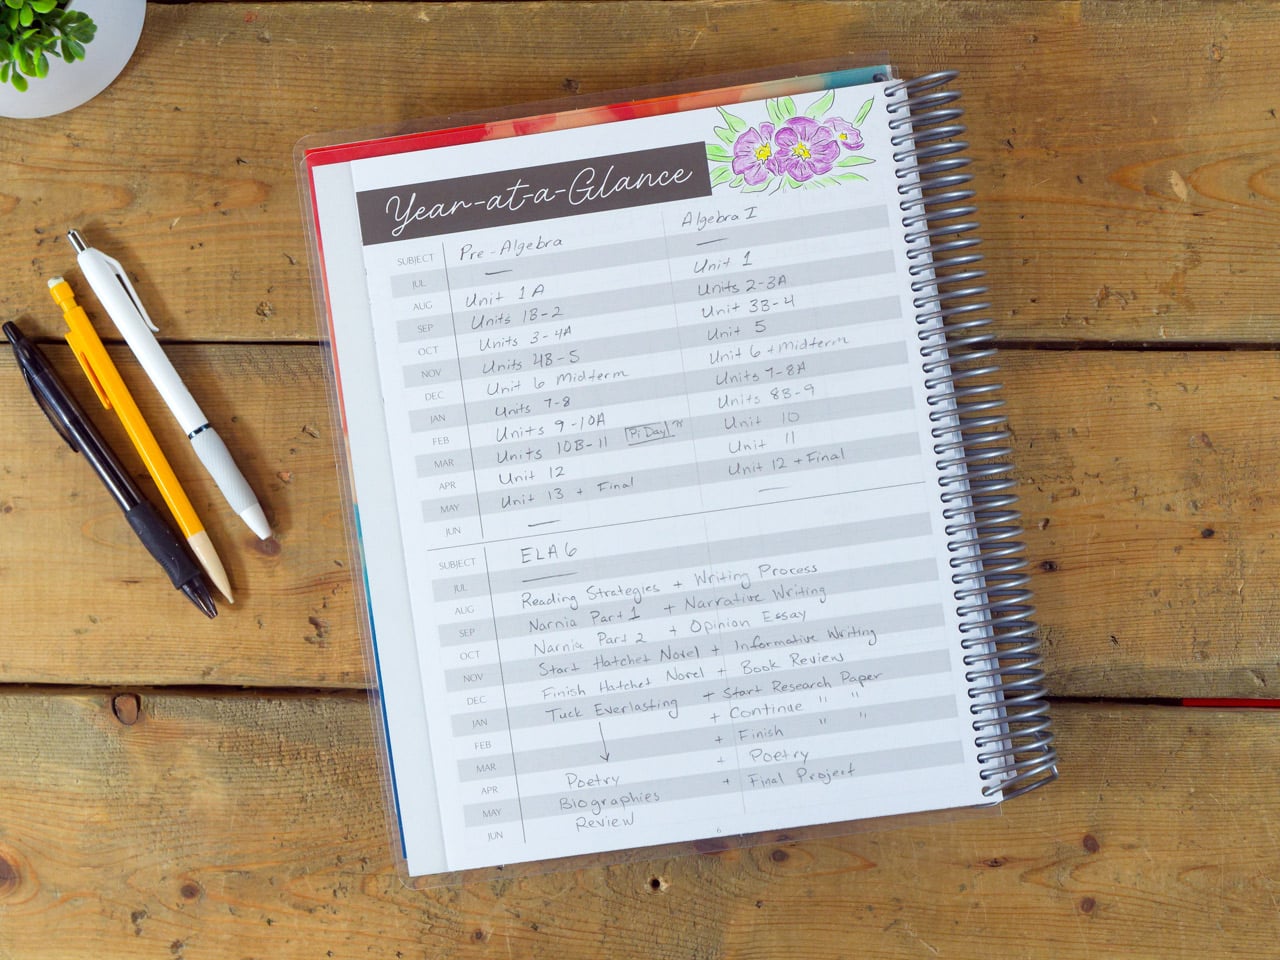 Year-at-a-Glance
SUBJECT Pre-Algebra Algebra I
JUL — —
AUG Unit 1A Unit 1
SEP Units 1B-2 Units 2-3A
OCT Units 3-4A Unit 3B-4
NOV Units 4B-5 Unit 5
DEC Unit 6 Midterm Unit 6 + Midterm
JAN Units 7-8 Units 7-8A
FEB Units 9-10A Units 8B-9
MAR Units 10B-11 Pi Day π Unit 10
APR Unit 12 Unit 11
MAY Unit 13 + Final Unit 12 + Final
JUN — —
SUBJECT ELA 6
JUL —
AUG Reading Strategies + Writing Process
SEP Narnia Part 1 + Narrative Writing
OCT Narnia Part 2 + Opinion Essay
NOV Start Hatchet Novel + Informative Writing
DEC Finish Hatchet Novel + Book Review
JAN Tuck Everlasting + Start Research Paper
FEB + Continue " "
MAR + Finish " "
APR Poetry + Poetry
MAY Biographies + Final Project
JUN Review
6